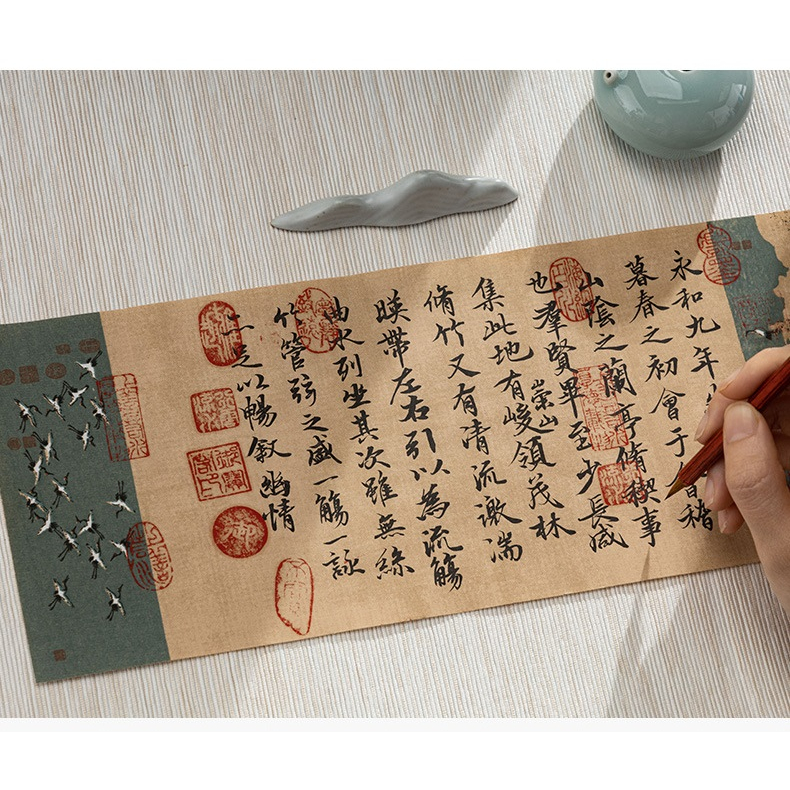 永和九年
暮春之初會于會稽
山陰之蘭亭脩稧事
也羣賢畢至少長咸
集此地有崇山峻領茂林
脩竹又有清流激湍
暎帶左右引以為流觴
曲水列坐其次雖無絲
竹管弦之盛一觴一詠
亦足以暢敘幽情